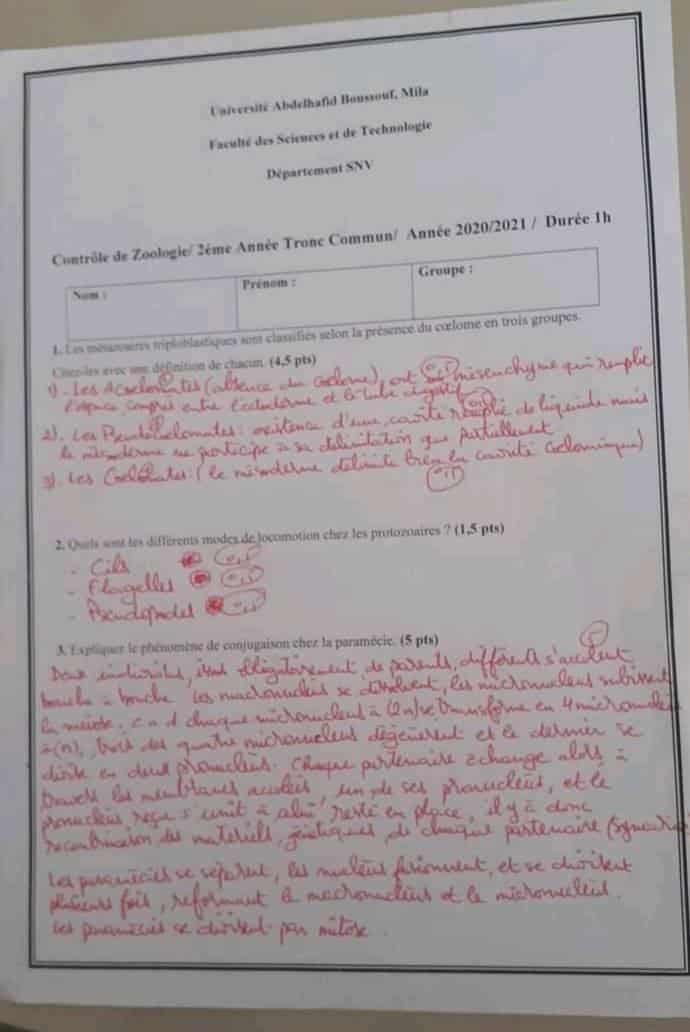 Université Abdelhafid Boussouf, Mila
Faculté des Sciences et de Technologie
Département SNV
Contrôle de Zoologie/ 2ème Année Tronc Commun/ Année 2020/2021 / Durée 1h
Nom :
Prénom :
Groupe :
1. Les métazoaires triploblastiques sont classifiés selon la présence du cœlome en trois groupes.
Citez-les avec une définition de chacun. (4,5 pts)
1)- Les Acœlomates (absence du Cœlome), ont mésenchyme qui remplie
l'espace compris entre l'ectoderme et le tube digestif
2). Les Pseudocœlomates : existence d'une cavité remplie de liquide mais
le mésoderme ne participe à sa délimitation que partiellement
3). Les Cœlomates : ( le mésoderme délimite la cavité Cœlomique)
2. Quels sont les différents modes de locomotion chez les protozoaires ? (1,5 pts)
- Cils
- Flagelles
- Pseudopodes
3. Expliquer le phénomène de conjugaison chez la paramécie. (5 pts)
Deux individus, obligatoirement de parents différents s'accolent
bouche à bouche les macronucleus se dissolvent, les micronucleus subissent
la meiose, c a d chaque micronucleus à (2n) se transforme en 4 micronucleus
à (n), trois des quatre micronucleus dégénèrent et le dernier se
divise en deux pronucleus. Chaque partenaire échange alors à
travers les membranes accolées, un de ses pronucleus, et le
pronucleus reçu s'unit à celui resté en place, il y a donc
recombinaison des matériels génétiques de chaque partenaire
Les paramécies se séparent, les nucleus fusionnent, et se divisent
plusieurs fois, reformant le macronucleus et le micronucleus.
Les paramécies se divisent par mitose.